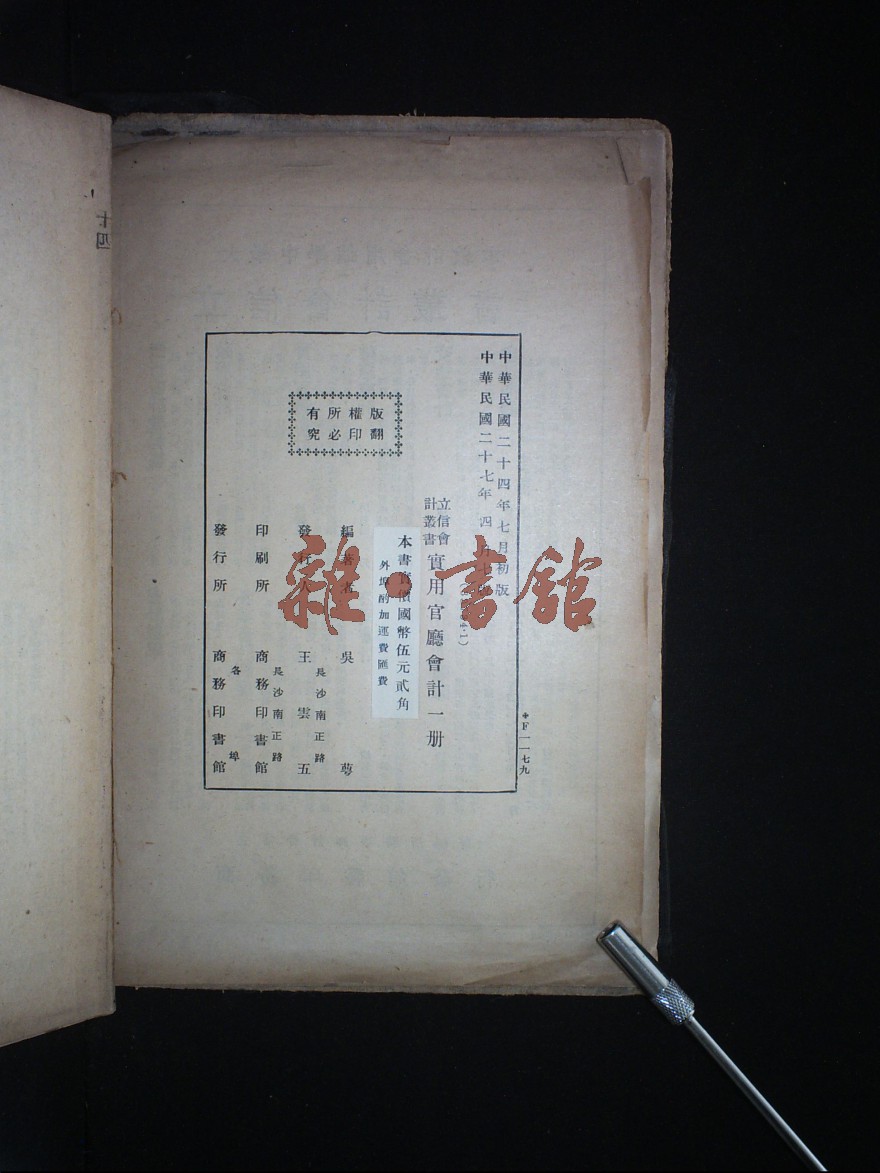 中華民國二十四年七月初版
中華民國二十七年四月
立信會計叢書
實用官廳會計一册
4·1)
本書實價國幣伍元貳角
外埠酌加運費匯費
版權所有
翻印必究
編著者 吳蕚
發行人 王雲五
長沙南正路
印刷所 商務印書館
長沙南正路
發行所 商務印書館
各埠
＊F一一七九
十四
雜·書館